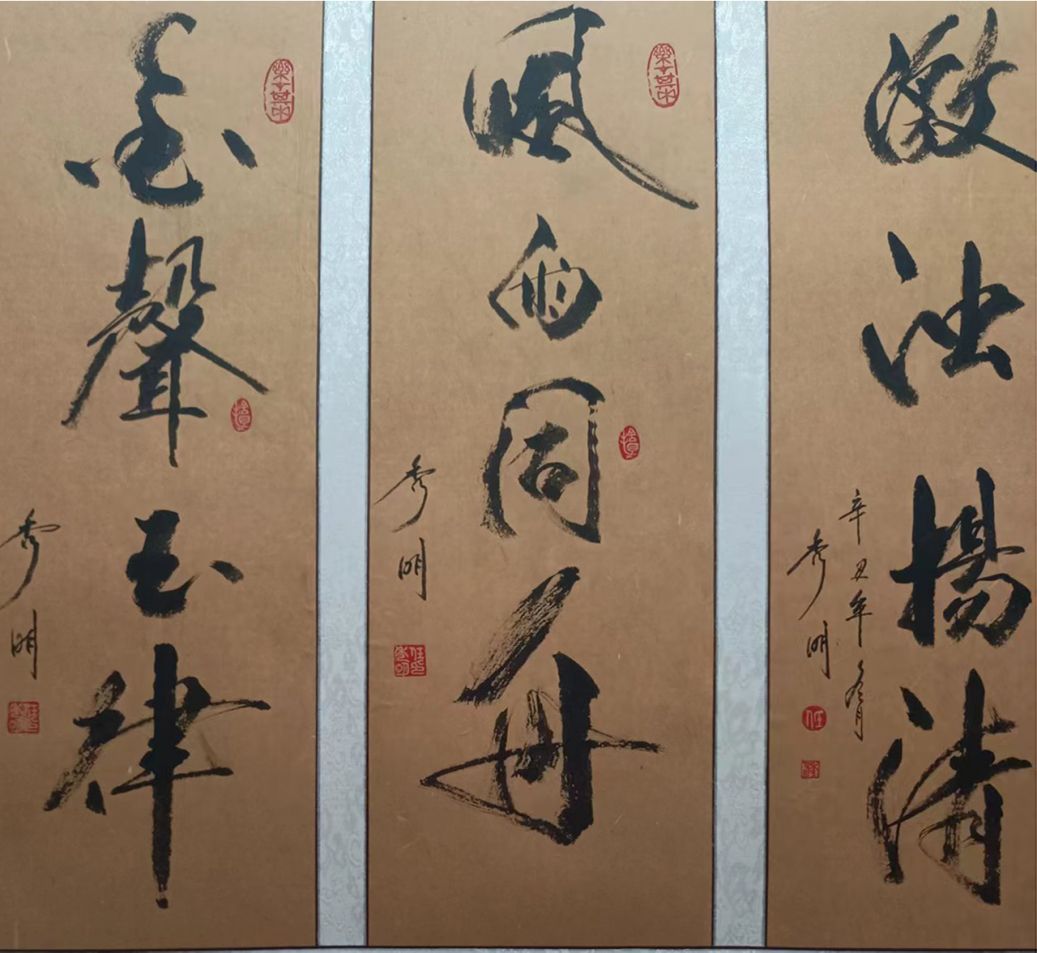 激浊揚清
辛丑年冬月
秀明
風雨同舟
秀明
金聲玉律
秀明